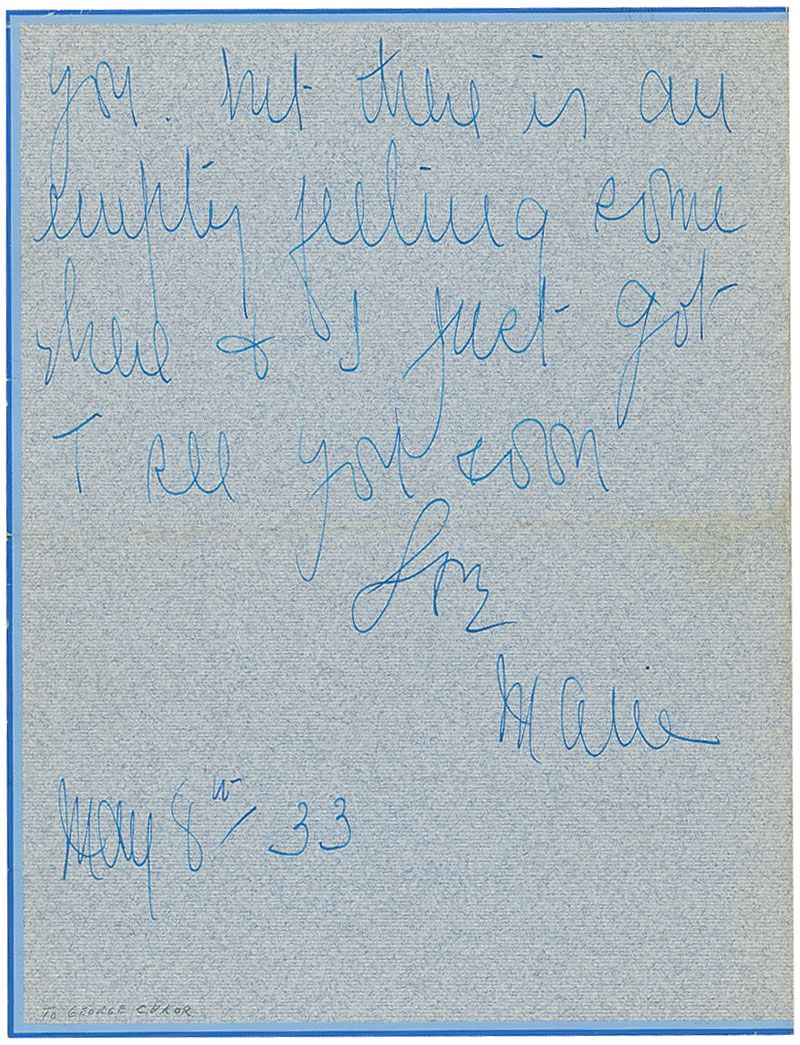 you. but there is an
empty feeling some
where & I just got
T see you soon
Love
Marie
May 8th 33
TO GEORGE CUKOR